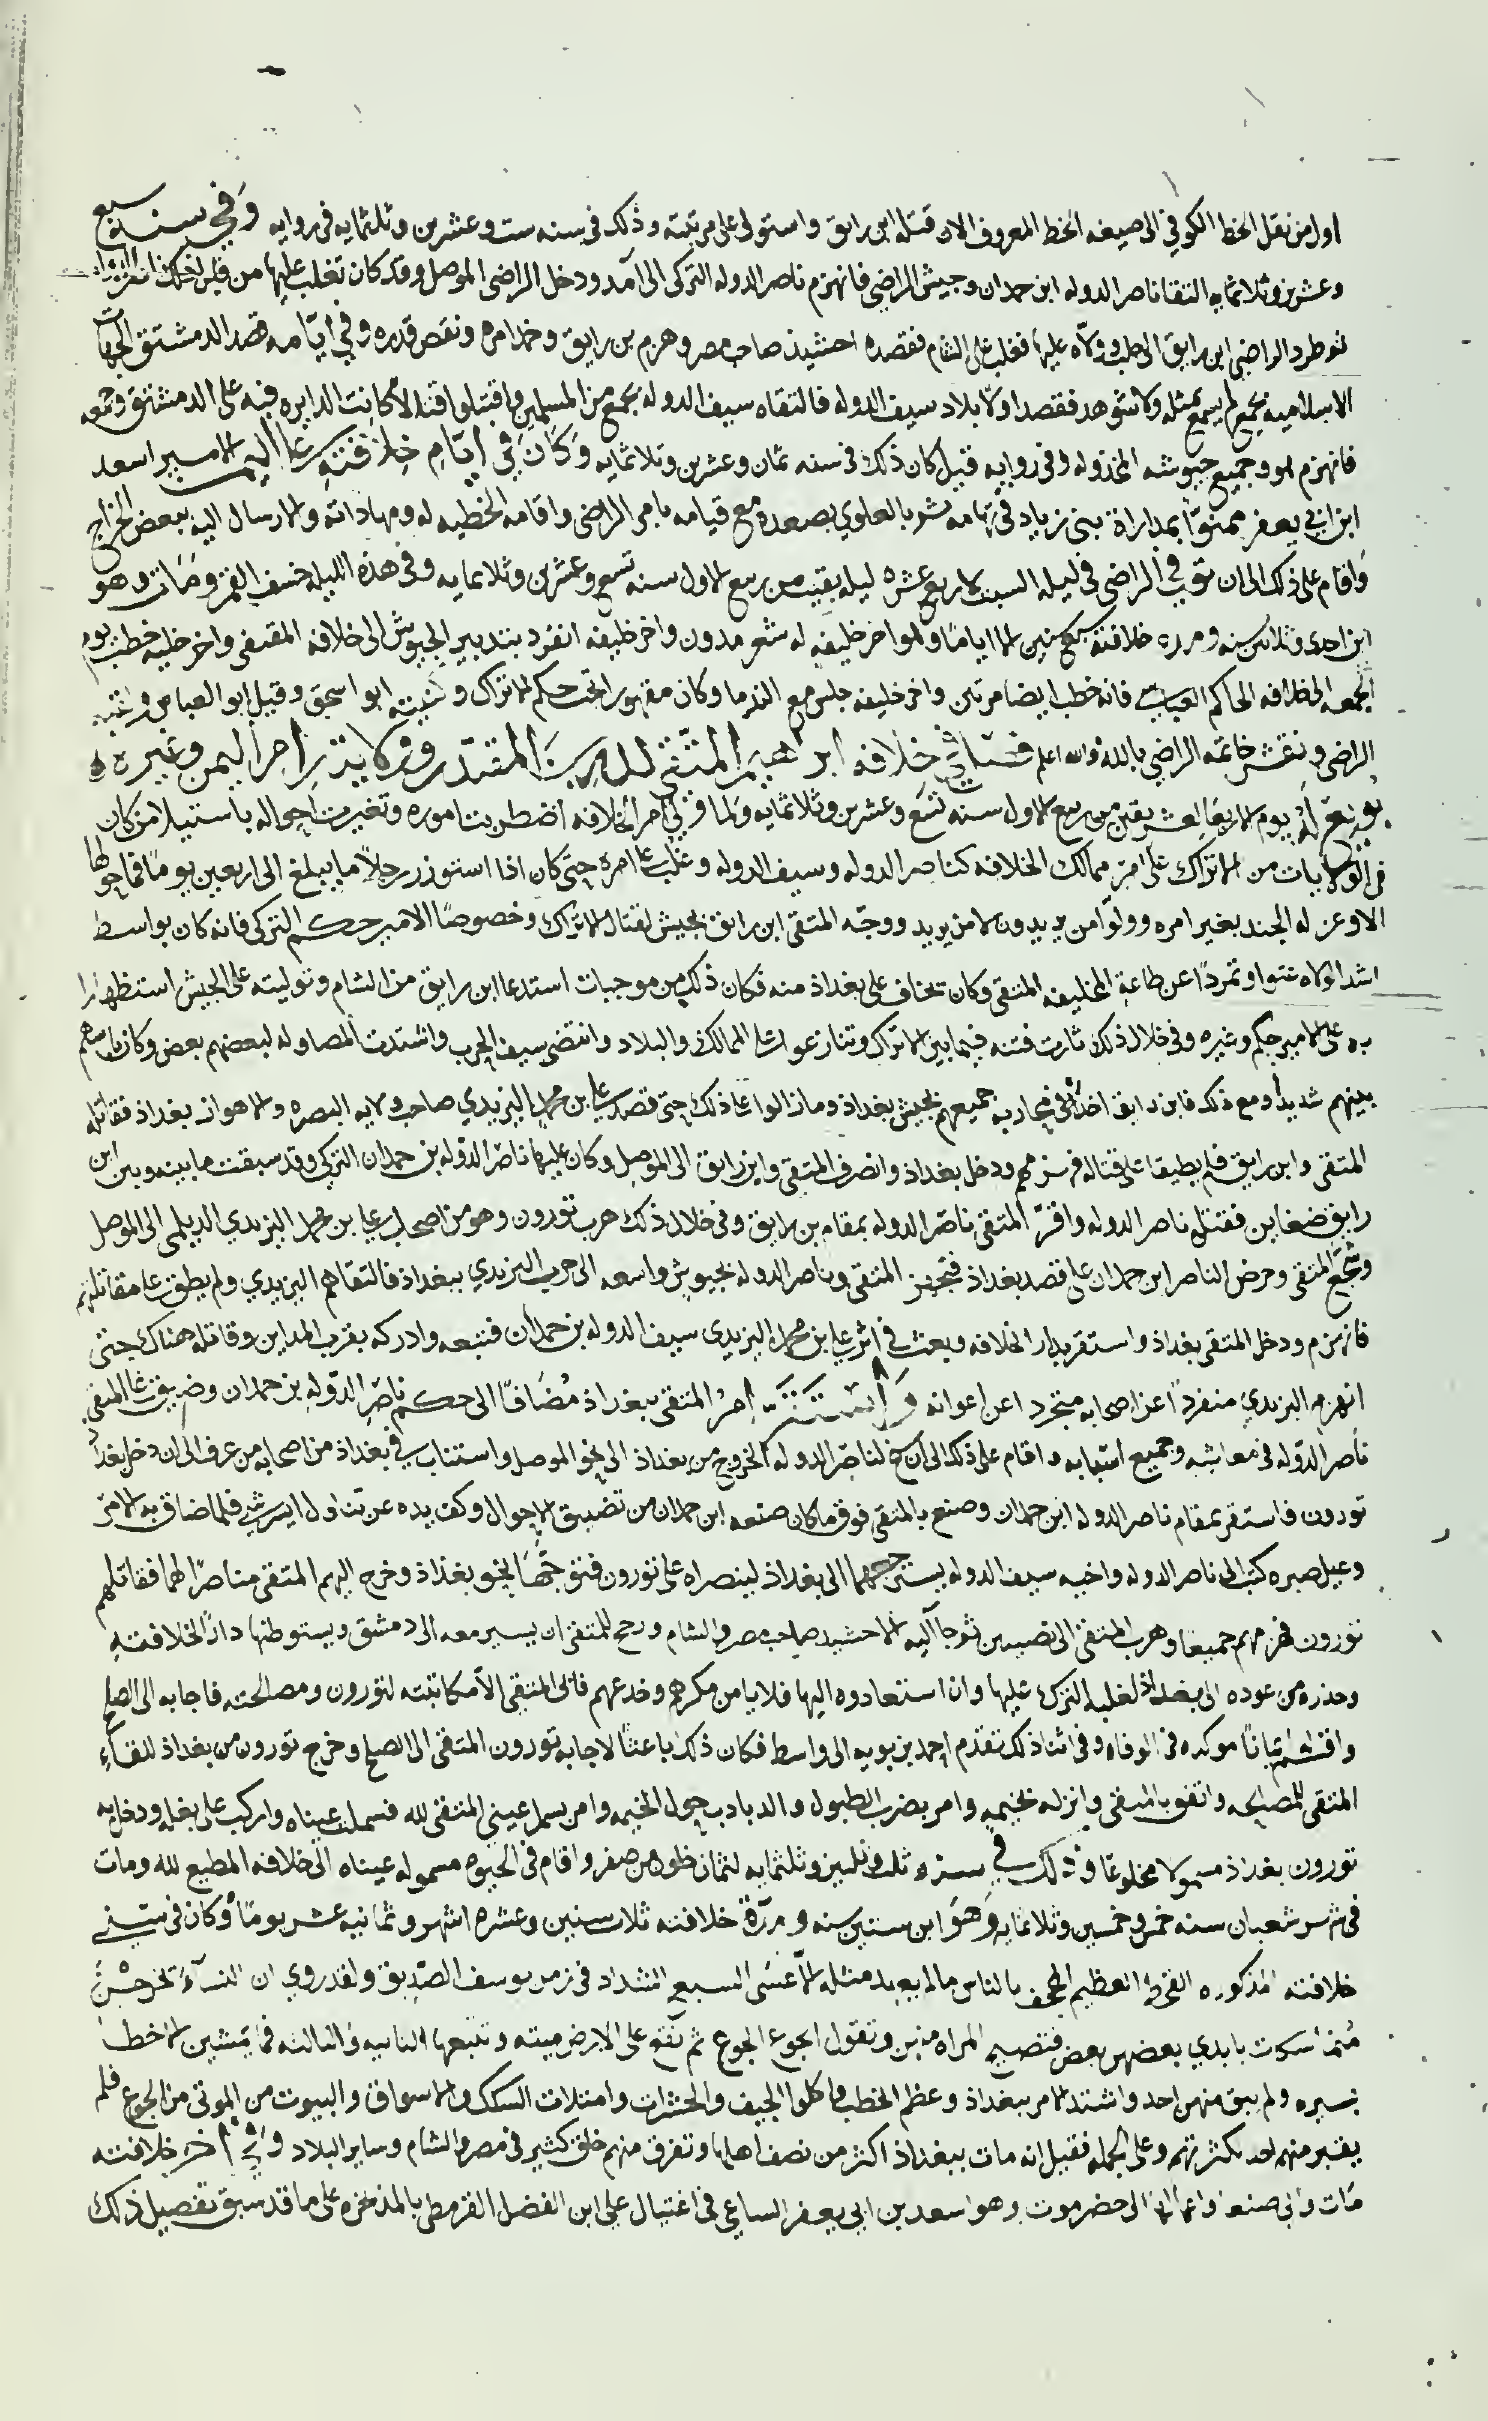 اول من نقل الخط الكوفي الى صيغه الخط المعروف الان قتله ابن رايق واستولى على مرتبته وذلك في سنه ست وعشرين وثلثمايه في روايه وفي سنه سبع
وعشرين وثلاثمايه التقا ناصر الدوله ابن حمدان وجيش الراضي فانهزم ناصر الدوله التركى الى آمد ودخل الراضي الموصل وقد كان تغلب عليها من قبل
ثم طرد الراضي ابن رايق الى حلب وولاه عليها فغلب على الشام فقصده اخشيذ صاحب مصر وهزم بن رايق وخمد امره ونقص قدره وفي ايامه قصد الدمشتق الجهات
الاسلاميه بجمع لم يسمع بمثله ولا شوهد فقصد اولا بلاد سيف الدوله فالتقاه سيف الدوله بجمع من المسلمين واقتتلوا قتالا كانت الدايره فيه على الدمشتق وجمعه
فانهزم هو وجميع جيوشه المخذوله وفي روايه قيل كان ذلك في سنه ثمان وعشرين وثلاثمايه وكان في ايام خلافته على اليمن الامير اسعد
ابن ابي يعفر ممنوا بمداراة بني زياد في تهامه وبالعلوي بصعده مع قيامه بامر الراضي واقامه الخطبه له ومهاداته والارسال اليه ببعض الخراج
واقام على ذلك الى ان توفي الراضي في ليله السبت لاربع عشره ليله بقيت من ربيع الاول سنه تسع وعشرين وثلاثمايه وفي هذه الليله خسف القمر ومات وهو
ابن احدى وثلاثين سنه ومدة خلافته سبع سنين الا اياما وهو اخر خليفه له شعر مدون واخر خليفه انفرد بتدبير الجيوش الى خلافه المقتفى واخر خليفه خطب يوم
الجمعه الى خلافه الحاكم العباسي فانه خطب ايضا مرتين واخر خليفه جلس مع الندما وكان مقهورا تحت حكم الاتراك وكنيته ابو اسحق وقيل ابو العباس
الراضي ونقش خاتمه الراضي بالله والله اعلم فصل في خلافه ابراهيم المتقى لله بن المقتدر وولايته امر اليمن وغيره
بويع له يوم الاربعا لعشر بقين من ربيع الاول سنه تسع وعشرين وثلاثمايه ولما ولي امر الخلافه اضطربت اموره وتغيرت احواله باستيلا من كان
في الولايات من الاتراك على اكثر ممالك الخلافه كناصر الدوله وسيف الدوله وغلب على امره حتى كان اذا استوزر رجلا ما يبلغ الى اربعين يوما فما حولها
الا وعزله الجند بغير امره وولوا من يريدون لا من يريد ووجه المتقى ابن رايق بجيش لقتال الاتراك وخصوصا الامير حكم التركى فانه كان بواسط
اشد الولاه عتوا وتمردا عن طاعة الخليفه المتقى وكان يخاف على بغداذ منه فكان ذلك من موجبات استدعا ابن رايق من الشام وتوليته على الجيش استظهارا
به على الامير حكم وغيره وفي خلال ذلك ثارت فتنه فيما بين الاتراك وتنازعوا على الممالك والبلاد وانتضى سيف الحرب واشتدت المصاوله لبعضهم بعض وكان باسهم
بينهم شديدا ومع ذلك فابن رايق اخذ في محاربه جميعهم بجيش بغداذ وما زالوا على ذلك حتى قصد على بن محمد اليزيدي صاحب ولايه البصره والاهواز بغداذ فقاتله
المتقى وابن رايق فلم يطيقا على قتاله فهزمهم ودخل بغداذ وانصرف المتقى وابن رايق الى الموصل وكان عليها ناصر الدوله بن حمدان التركى وقد سبقت ما بينه وبين ابن
رايق ضغاين فقتله ناصر الدوله واقر المتقى ناصر الدوله بمقام بن رايق وفي خلال ذلك هرب تورون وهو من اصحاب على بن محمد اليزيدي الديلمى الى الموصل
وشجع المتقى وحرض الناصر ابن حمدان على قصد بغداذ فتجهز المتقى وناصر الدوله بجيوش واسعه الى حرب اليزيدي ببغداذ فالتقاهم اليزيدي ولم يطق على مقاتلتهم
فانهزم ودخل المتقى بغداذ واستقر بدار الخلافه وبعث في اثر على بن محمد اليزيدى سيف الدوله بن حمدان فتبعه وادركه بقرب المداين وقاتله هناك حتى
انهزم اليزيدي منفردا عن اصحابه متجردا عن اعوانه واستقر امر المتقى ببغداذ مضافا الى حكم ناصر الدوله بن حمدان وضيق على المتقى
ناصر الدوله في معايشه وجميع اسبابه واقام على ذلك الى ان سنح لناصر الدوله الخروج من بغداذ الى نحو الموصل واستناب في بغداذ من اصحابه من عرف الى ان دخل بغداذ
تورون فاستقر بمقام ناصر الدوله ابن حمدان وصنع بالمتقى فوق ما كان صنعه ابن حمدان من تضييق الاحوال وكف يده عن تناول ايسر شي فلما ضاق به الامر
وعيل صبره كتب الى ناصر الدوله واخيه سيف الدوله يستنهضهما الى بغداذ لينصراه على تورون فتوجها نحو بغداذ وخرج اليهم المتقى مناصرا لهما فقاتلهم
تورون فهزمهم جميعا وهرب المتقى الى نصيبين ثم جا اليه الاخشيد صاحب مصر والشام ورجح للمتقى ان يسير معه الى دمشق ويستوطنها دار الخلافته
وحذره من عوده الى بغداذ لغلبه الترك عليها وان استعادوه اليها فلا يامن مكرهم وخدعهم فابى المتقى الا مكاتبته لتورون ومصالحته فاجابه الى الصلح
واقسم ايمانا موكده في الوفاء وفي اثنا ذلك تقدم احمد بن بويه الى واسط فكان ذلك باعثا لاجابه تورون المتقى الى الصلح وخرج تورون من بغداذ للقاء
المتقى للمصالحه واتفق بالمتقى وانزله بخيمه وامر بضرب الطبول والدبادب حول الخيمه وامر بسمل عيني المتقى لله فسملت عيناه واركب على بغله ودخل به
تورون بغداذ مسمولا مخلوعا وذلك في سنه ثلث وثلثين وثلثمايه لثمان خلون من صفر واقام في الحيوه مسموله عيناه الى خلافه المطيع لله ومات
في شهر شعبان سنه خمس وخمسين وثلاثمايه وهو ابن ستين سنه ومدة خلافته ثلاث سنين وعشره اشهر وثمانيه عشر يوما وكان في سني
خلافته المذكوره القحط العظيم المجحف بالناس ما لم يعهد مثله الا عسى السبع الشداد في زمن يوسف الصديق ولقد روي ان النسآء تخرجن
متماسكات بايدي بعضهن بعض فتصيح المراه منهن وتقول الجوع الجوع ثم تقع على الارض ميته وتتبعها الثانيه والثالثه فما يمشين الا خطا
يسيره ولم يبق منهن احد واشتد الامر ببغداذ وعظم الخطب واكلوا الجيف والحشرات وامتلات السكك والاسواق والبيوت من الموتى من الجوع فلم
يقبر منهم احد لكثرتهم وعلى الجمله فقيل انه مات ببغداذ اكثر من نصف اهلها وتفرق منهم خلق كثير في مصر والشام وساير البلاد وفي اخر خلافته
مات والى صنعا واعمالها الى حضرموت وهو اسعد بن ابي يعفر الساعى في اغتيال على ابن الفضل القرمطى بالمذيخره على ما قد سبق تفصيل ذلك